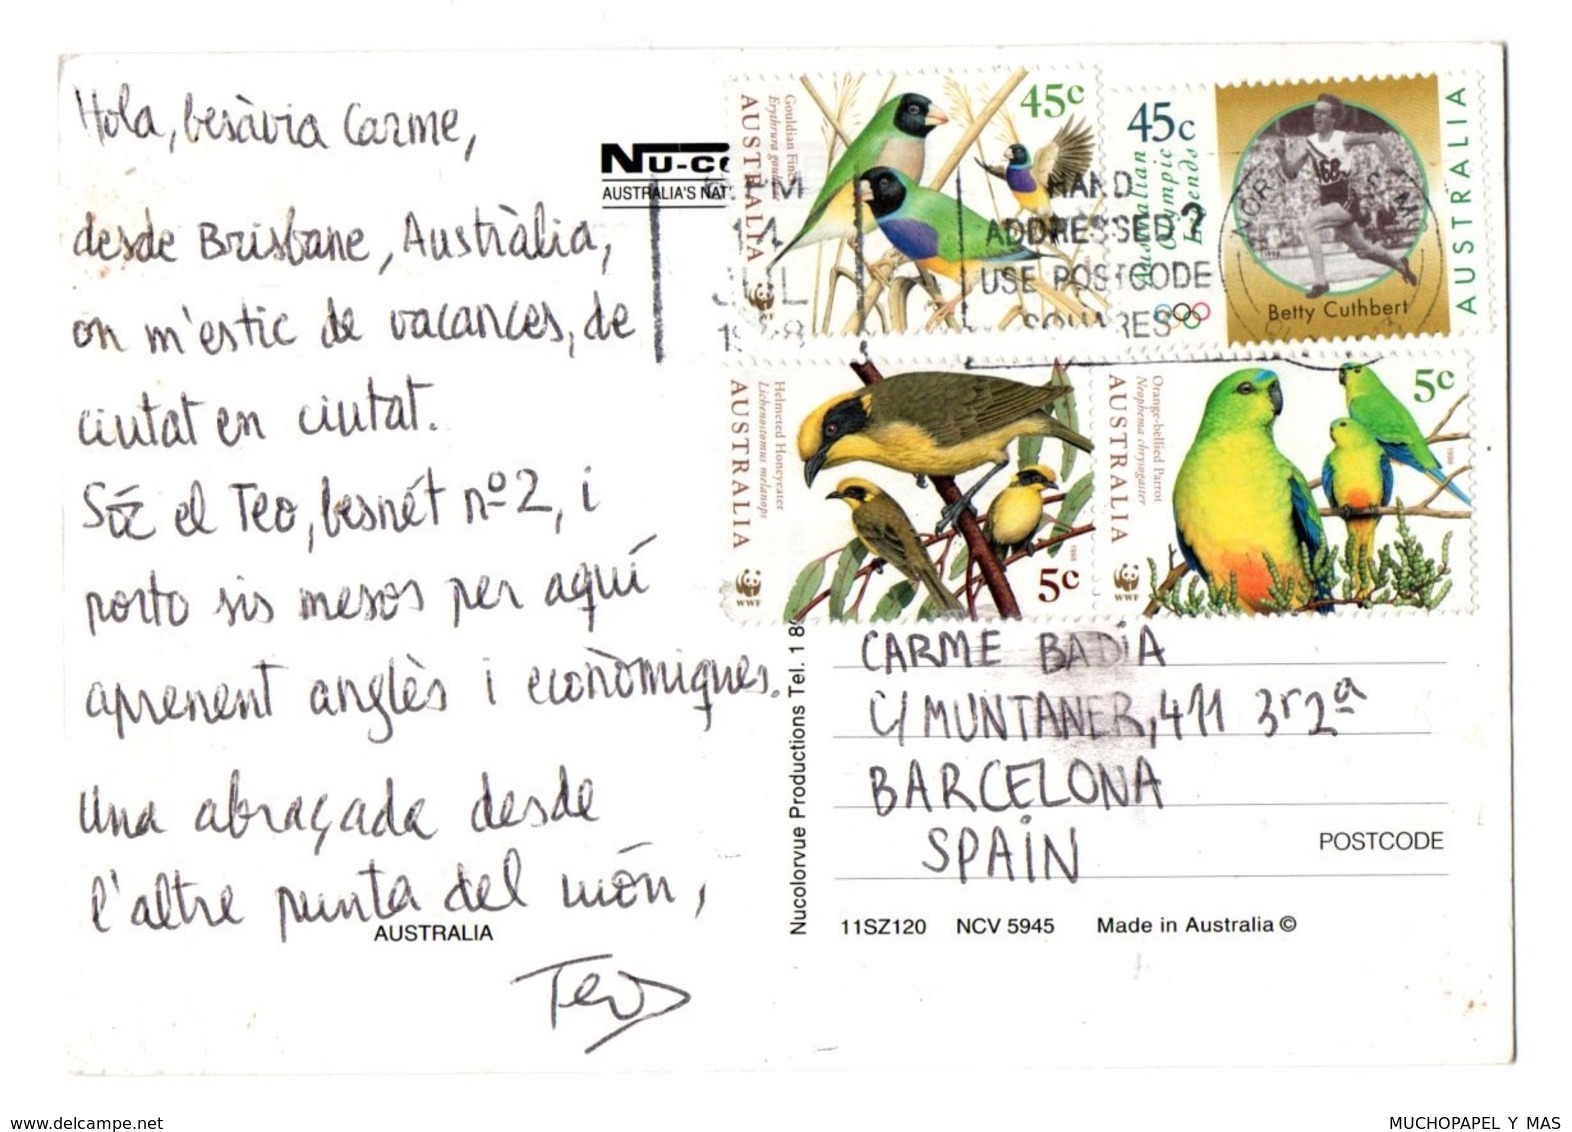 Hola, besàvia Carme,
desde Brisbane, Austràlia,
on m'estic de vacances, de
ciutat en ciutat.
Sóc el Teo, besnét nº 2, i
porto sis mesos per aquí
aprenent anglès i econòmiques.
Una abraçada desde
l'altre punta del món,
Teo
AUSTRALIA
NU-CO
AUSTRALIA'S NAT
45c
Gouldian Finch
Erythrura gouldiae
AUSTRALIA
WWF
PM
14
JUL
HAND
ADDRESSED?
USE POSTCODE
SQUARES
45c
Australian
Olympic
Legends
Betty Cuthbert
AUSTRALIA
Helmeted Honeyeater
Lichenostomus melanops
AUSTRALIA
WWF
1998
5c
Orange-bellied Parrot
Neophema chrysogaster
AUSTRALIA
WWF
1998
5c
Nucolorvue Productions Tel. 1 8
CARME BADIA
C/ MUNTANER, 411 3r 2ª
BARCELONA
SPAIN
POSTCODE
11SZ120 NCV 5945 Made in Australia ©
www.delcampe.net
MUCHOPAPEL Y MAS